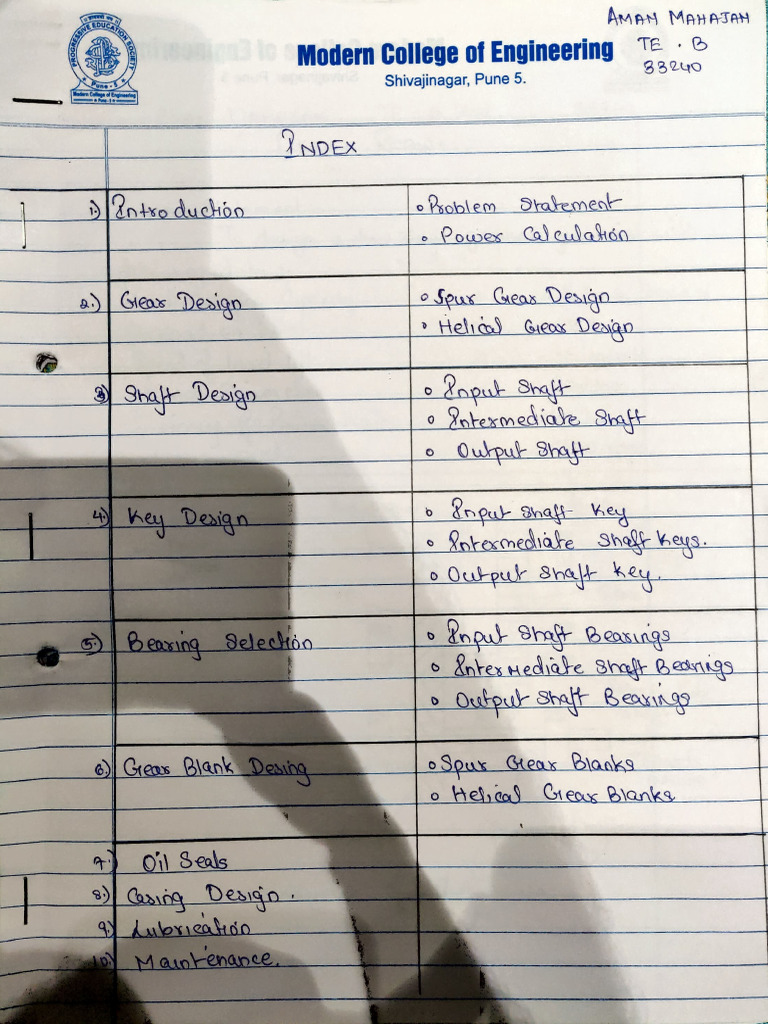 AMAN MAHAJAN
TE . B
33240
PROGRESSIVE EDUCATION SOCIETY
Pune - 5
Modern College of Engineering
Modern College of Engineering
Shivajinagar, Pune 5.
INDEX
1.) Introduction
• Problem Statement
• Power Calculation
2.) Gear Design
• Spur Gear Design
• Helical Gear Design
3) Shaft Design
• Input Shaft
• Intermediate Shaft
• Output Shaft
4.) Key Design
• Input Shaft Key
• Intermediate Shaft Keys.
• Output Shaft Key.
5.) Bearing Selection
• Input Shaft Bearings
• Intermediate Shaft Bearings
• Output Shaft Bearings
6.) Gear Blank Desing
• Spur Gear Blanks
• Helical Gear Blanks
7.) Oil Seals
8.) Casing Design.
9.) Lubrication
10.) Maintenance.